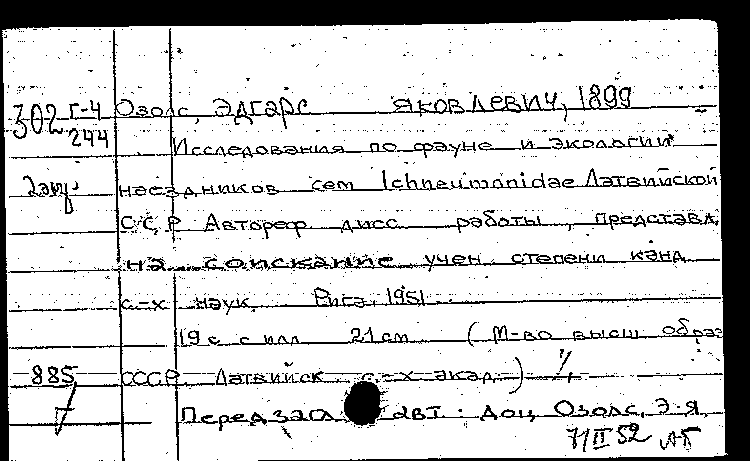 302 Г-4 Озолс, Эдгарс Яковлевич, 1899
244
Исследования по фауне и экологии
2 экз. наездников сем Ichneumonidae Латвийской
ССР Автореф дисс. работы, представл.
на соискание учен степени канд
с.-х наук. Рига, 1951
19 с с илл 21 см (М-во высш образ
885 СССР. Латвийск с.-х акад.)
Перед загл авт. доц Озолс, Э.Я.
II 52